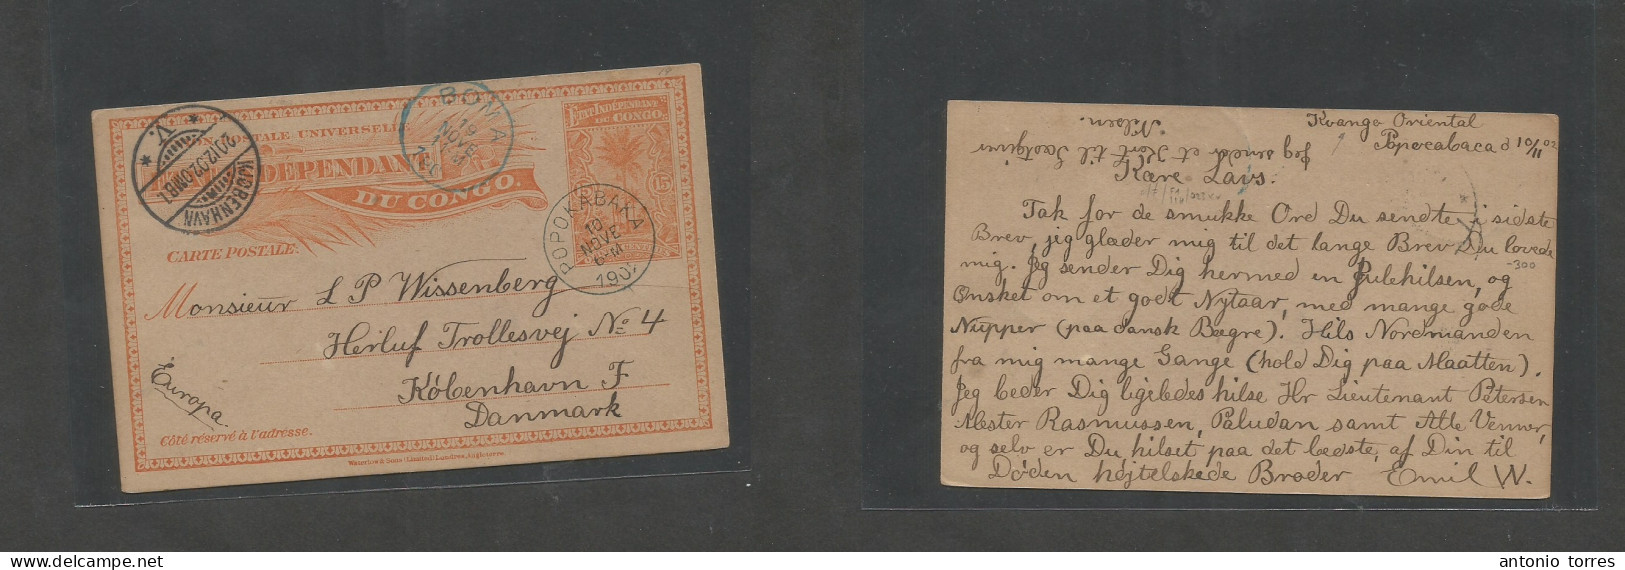 POSTALE UNIVERSELLE
DEPENDAN
DU CONGO.
CARTE POSTALE:
ETAT INDÉPENDANT
DU CONGO.
15
BOMA
19
NOVE
KJØBENHAVN
2.12.02.
V.
POPOKABAKA
10
NOVE
6-M
190
Monsieur L P Wissenberg
Herluf Trollesvej No 4
København F
Danmark
Europa.
Côté réservé à l'adresse.
Waterlow & Sons Limited, Londres, Angleterre.
Kvango Oriental
Popocabaca d 10/11 02
Jeg sendt et Kort til
Nilsen.
Kære Lavs.
Tak for de smukke Ord Du sendte i sidste
Brev, jeg glæder mig til det lange Brev Du lovede
mig. Jeg sender Dig hermed en Julehilsen, og
Ønsket om et godt Nytaar, med mange gode
Nupper (paa dansk Bægre). Hils Nordmanden
fra mig mange Gange (hold Dig paa Maatten).
Jeg beder Dig ligeledes hilse Hr Lieutenant Petersen
Mester Rasmussen, Paludan samt Alle Venner,
og selv er Du hilset paa det bedste, af Din til
Døden højtelskede Broder Emil W.
-300
antonio torres